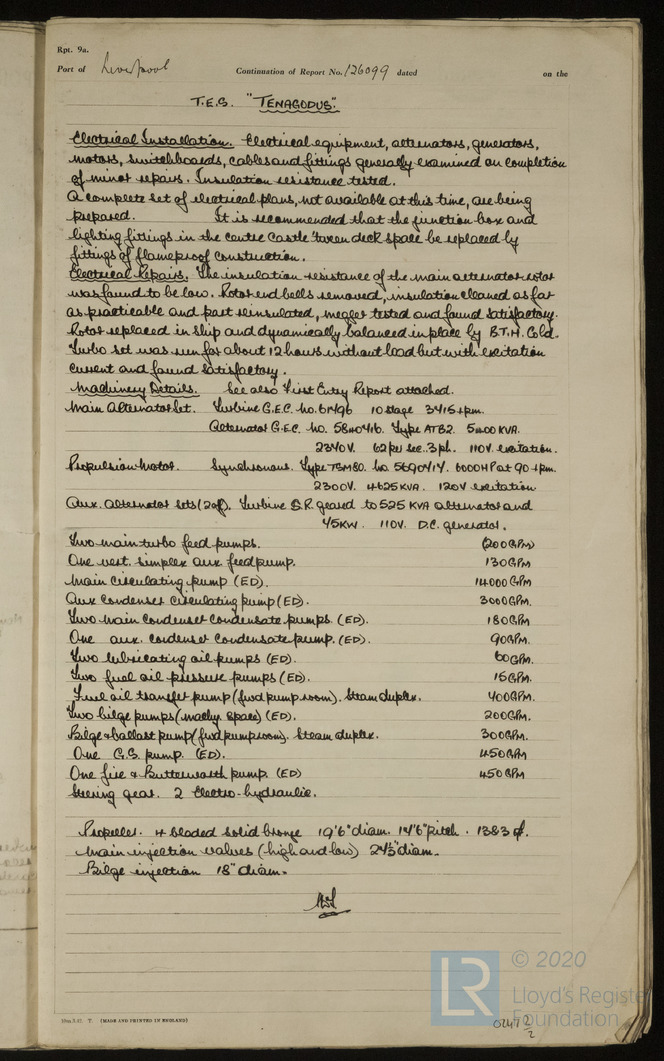 Rpt. 9a.
Port of Liverpool Continuation of Report No. 126099 dated on the
T.E.S. "TENAGODUS".
Electrical Installation. Electrical equipment, alternators, generators,
motors, switchboards, cables and fittings generally examined on completion
of minor repairs. Insulation resistance tested.
A complete set of electrical plans, not available at this time, are being
prepared. It is recommended that the junction box and
lighting fittings in the centre castle 'tween deck space be replaced by
fittings of flameproof construction.
Electrical Repairs. The insulation resistance of the main alternator rotor
was found to be low. Rotor end bells removed, insulation cleaned as far
as practicable and part reinsulated, megger tested and found satisfactory.
Rotor replaced in ship and dynamically balanced in place by B.T.H. Co Ld.
Turbo set was run for about 12 hours without load but with excitation
current and found satisfactory.
Machinery Details. See also First Entry Report attached.
Main Alternator Set. Turbine G.E.C. No. 61496 10 stage 3715 r.p.m.
Alternator G.E.C. no. Type ATB2. 5400 KVA.
2340V. 62 per sec. 3 ph. 110V. excitation.
Propulsion Motor. Synchronous. Type TSM80. no. 6000 HP at 90 r.p.m.
2300V. 4625 KVA. 120V excitation
Aux. alternator sets (2 off). Turbine D.R. geared to 525 KVA alternator and
75KW. 110V. D.C. generator.
Two main turbo feed pumps. (200 GPM)
One vert. simplex aux. feed pump. 130 GPM
Main circulating pump (ED). 14000 GPM
Aux condenser circulating pump (ED). 3000 GPM.
Two main condenser condensate pumps. (ED). 180 GPM
One aux. condenser condensate pump. (ED). 90 GPM.
Two lubricating oil pumps (ED). 60 GPM.
Two fuel oil pressure pumps (ED). 15 GPM.
Fuel oil transfer pump (fwd pump room). Steam duplex. 400 GPM.
Two bilge pumps (machy. space) (ED). 200 GPM.
Bilge & ballast pump (fwd pump room). Steam duplex. 300 GPM.
One G.S. pump. (ED). 450 GPM
One fire & Butterworth pump. (ED) 450 GPM
Steering gear. 2 Electro-hydraulic.
Propeller. 4 bladed solid bronze 19'6" diam. 14'6" pitch.
Main injection valves (high and low) diam.
Bilge injection 18" diam.
(MADE AND PRINTED IN ENGLAND)
© 2020
LR
Lloyd's Register
Foundation